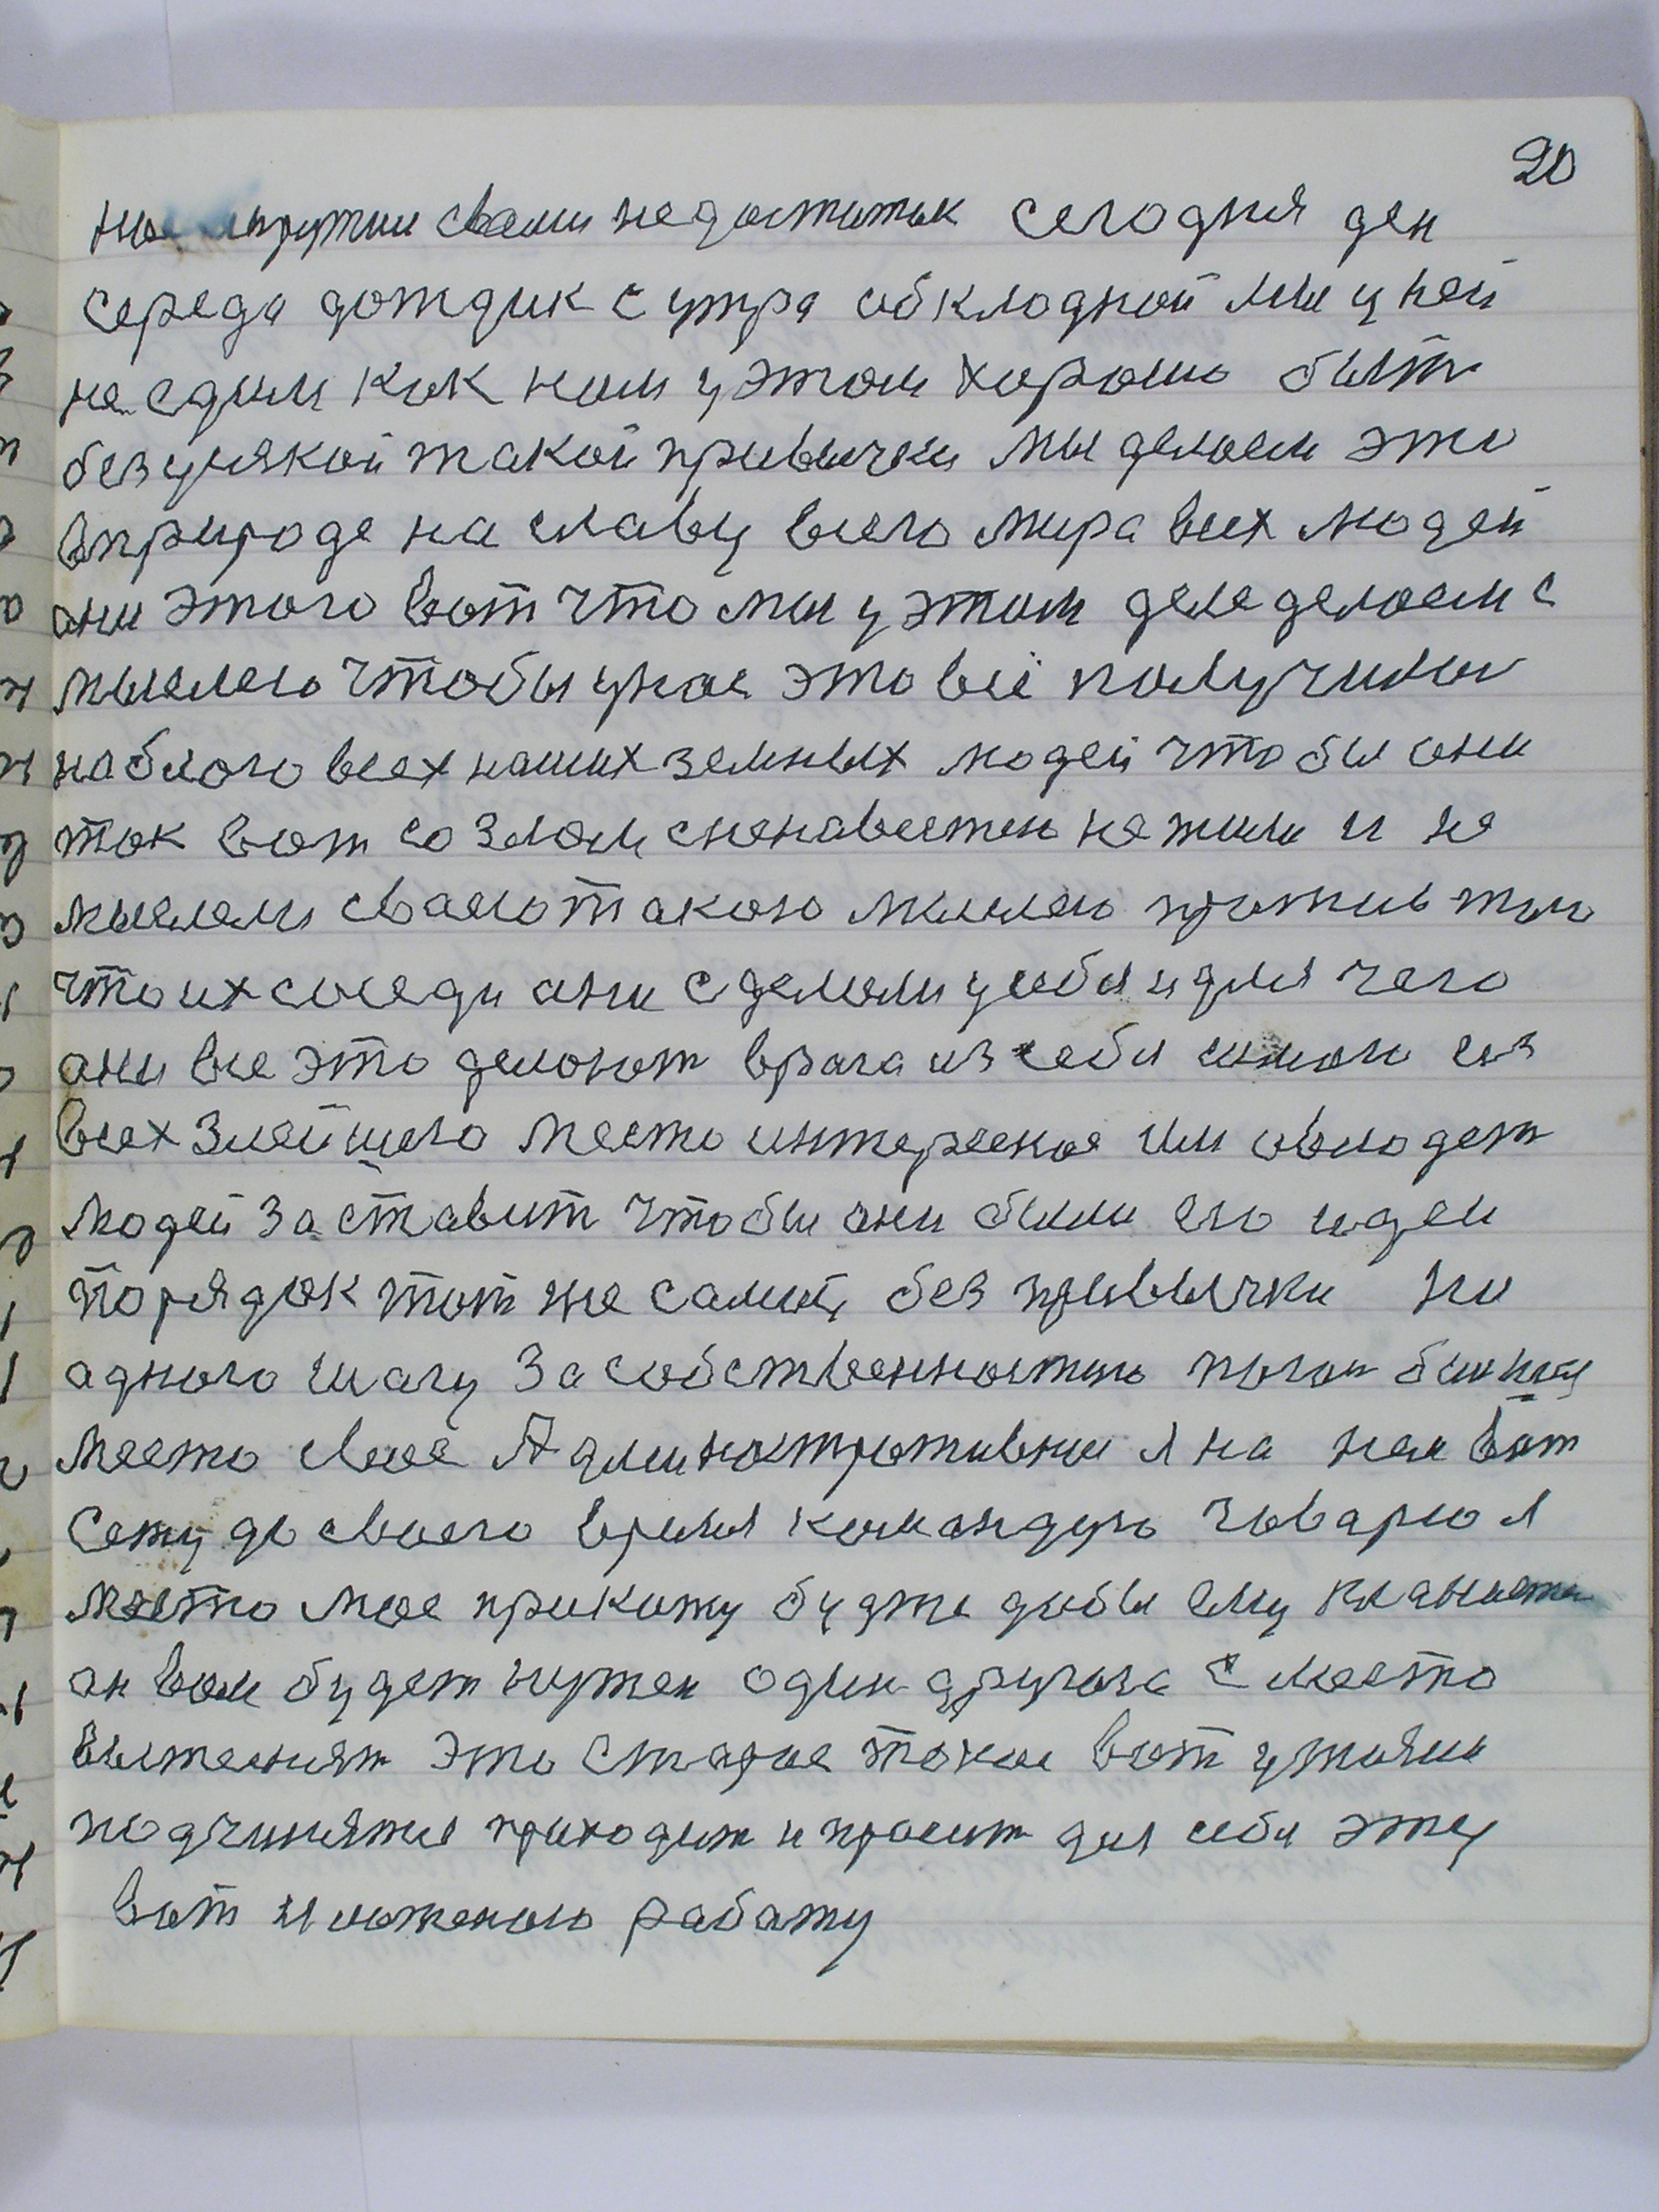 20
сваи недостаток сегодня ден
середа дождик с утра обкладной мы у ней
не едим как нам у этом хорошо быть
без усякой такой привычки мы делаем это
вприроде на славу всего мира всех людей
они этого вот что мы у этом деле делаем с
мыслею чтобы унас это всё получилось
на благо всех наших земных людей чтобы они
так вот со злом сненавестью не жили и не
мыслели сваею такою мыслею против того
что их соседи они сделали у себя и для чего
они все это делают врага из себя из
всех злейшего место интересное им овладет
людей заставит чтобы они были его идеи
порядок тот же самый без привычки ни
адного шагу за собственностью
место свое Админостротивное я на нем вот
сежу до своего время командую говарю я
место мое прикажу будте добы ему
он вам будет нужен один другога с места
вытеснят это старое такое вот
подчинятся приходит и просит для себя эту
вот работу